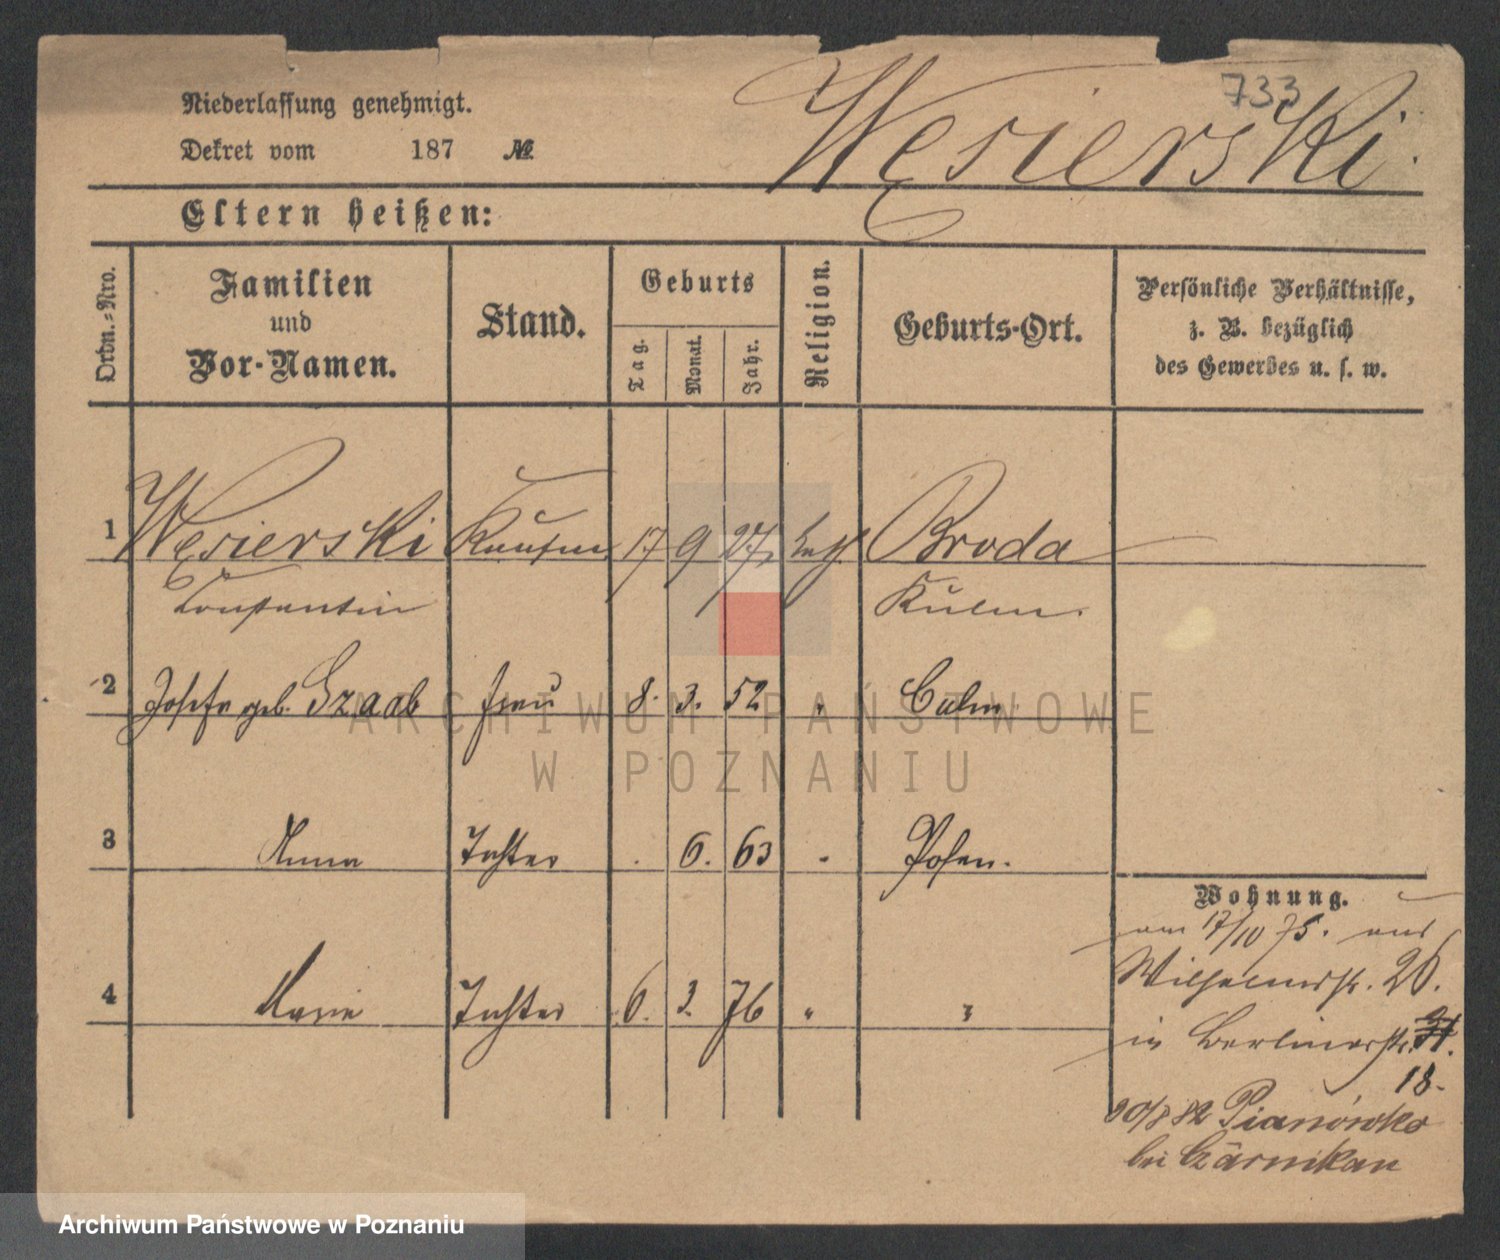 733
Niederlassung genehmigt.
Dekret vom 187 №
Wesierski
Eltern heißen:
Ordn.-Nro.
Familien und Vor-Namen.
Stand.
Geburts
Tag.
Monat.
Jahr.
Religion.
Geburts-Ort.
Persönliche Verhältnisse,
z. B. bezüglich
des Gewerbes u. s. w.
1 Wesierski Kaufm. 17 9 27 kath. Broda
Constantin Kulm.
2 Josefa geb. Szaab Frau 8. 3. 52 " Culm
3 Anna Tochter . 6. 63 " Posen.
4 Marie Tochter 6. 3. 76 " "
Wohnung.
am 17/10 75. aus
Wilhelmstr. 26.
in Berlinerstr.
18.
30/8 82 Pianówko
bei Czarnikau
ARCHIWUM PAŃSTWOWE
W POZNANIU
Archiwum Państwowe w Poznaniu